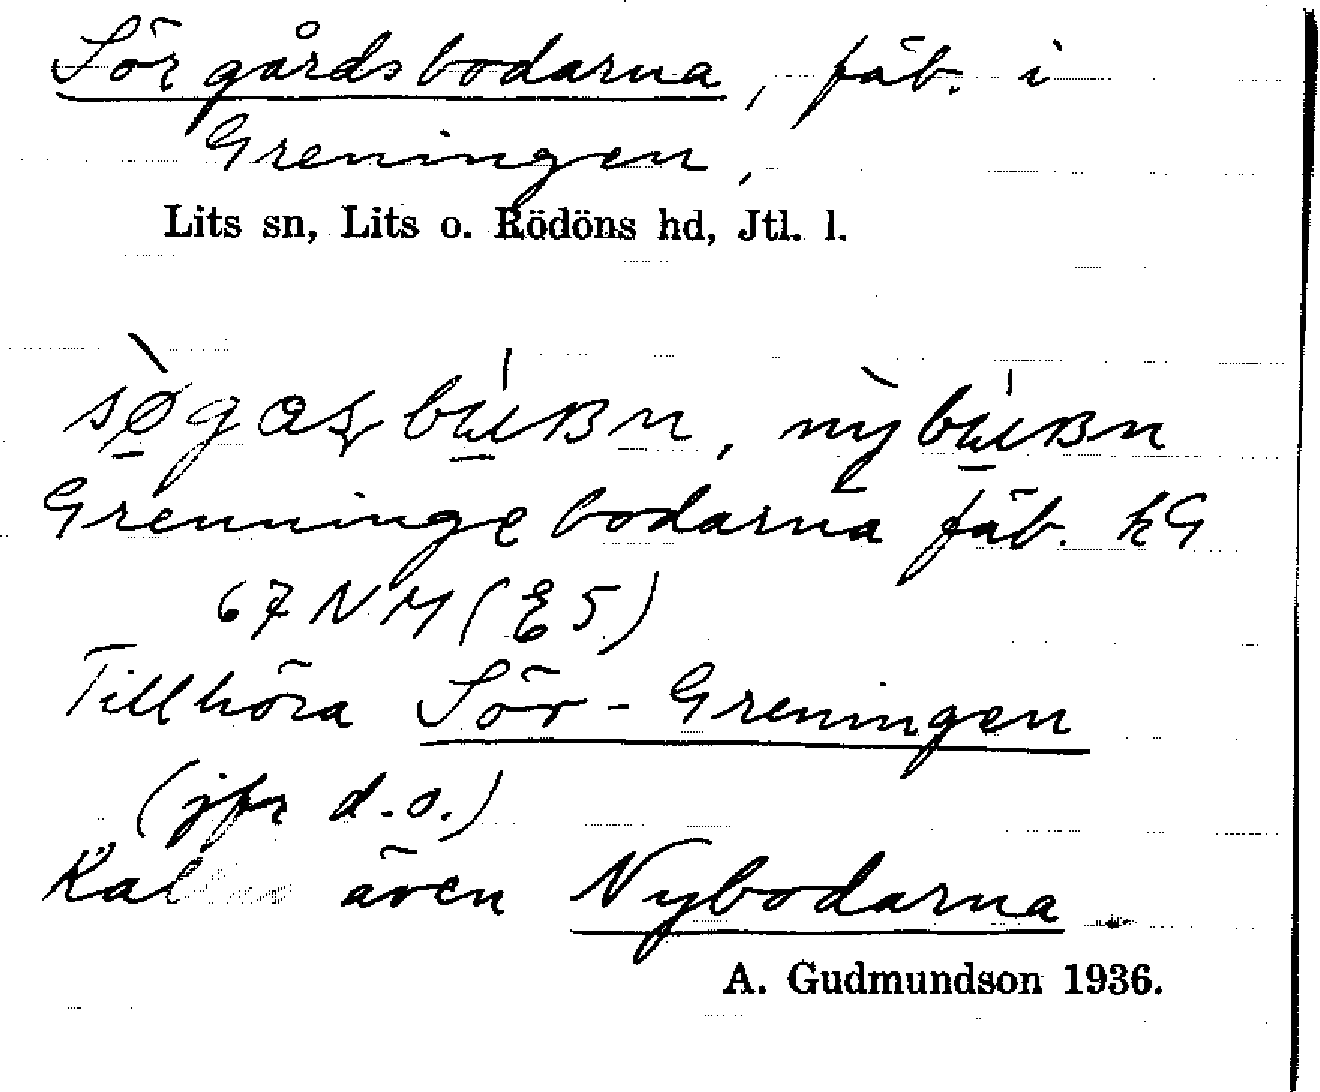 Sörgårdsbodarna, fäb. i
Greningen,
Lits sn, Lits o. Rödöns hd, Jtl. l.
Grenningebodarna fäb. kG
67 NM (E5)
Tillhöra Sör-Greningen
(jfr d.o.)
även Nybodarna
A. Gudmundson 1936.